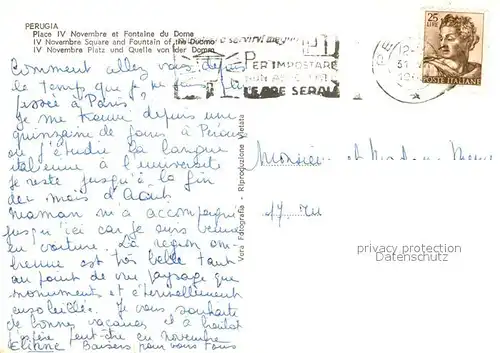 PERUGIA
Place IV Novembre et Fontaine du Dome
IV Novembre Square and Fountain of the Duomo
IV Novembre Platz und Quelle von der Domm
Comment allez vous depuis
le temps que je ne
à Paris?
Je me trouve depuis une
quinzaine de jours à Pérouse
où j'étudie la langue
italienne à l'université
Je reste jusqu'à la fin
du mois d'Août
Maman m'a accompagnée
jusqu'ici car je suis venue
en voiture. La région om-
brienne est très belle tant
au point de vue paysage que
monuments et éternellement
ensoleillée. Je vous souhaite
de bonnes vacances et à
peut-être en novembre
Baisers pour vous tous
Vera Fotografia - Riproduzione Vietata
PER IMPOSTARE
NON
LE ORE SERALI
25
POSTE ITALIANE
Monsieur et
17 rue
privacy protection
Datenschutz